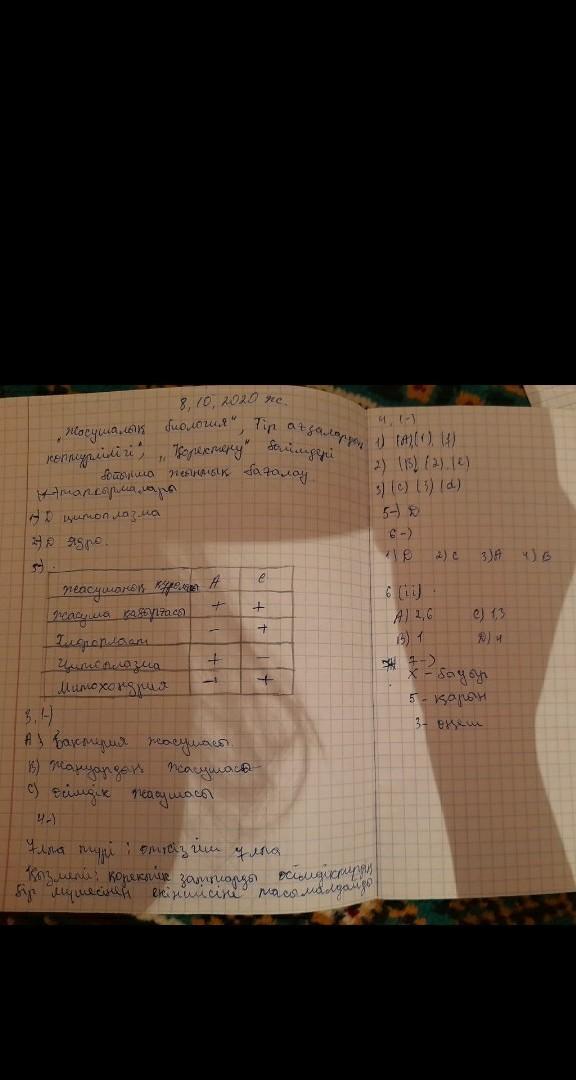 8,10,2020 жс.
„Жасушалық биология", Тір ағзалардың
көптүрлілігі", „Қоректену" бөлімдері
бойынша жиынтық бағалау
тапсырмалары
1-) D цитоплазма
2-) D Ядро.
3-).
Жасушаның құрылысы А С
Жасуша қабырғасы + +
Хлоропласт - +
Цитоплазма + -
Митохондрия - +
3, 1-)
А) Бактерия жасушасы.
В) Жануардың жасушасы
С) Өсімдік жасушасы
4-)
Ұлпа түрі: өткізгіш ұлпа
Қызметі: қоректік заттарды өсімдіктердің
бір мүшесінен екіншісіне тасымалдайды
4, (-)
1) (A) (1) (f)
2) (B) (2) (e)
3) (c) (3) (d)
5-) D
6-)
1) D 2) c 3) A 4) B
6 (ii).
A) 2,6 C) 1,3
B) 1 D) 4
7-)
X - бауыр
5 - қарын
3 - өңеш